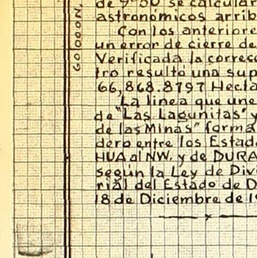 de 9°30' se calcular
astronómicos arrib
Con los anteriore
un error de cierre de
Verificada la correcc
tro resultó una sup
66,868.8797 Hecta
La linea que une
de "Las Lagunitas" y
de las Minas" forma
dero entre los Estad
HUA al NW. y de DURA
según la Ley de Divi
rial del Estado de D
18 de Diciembre de 19
60000N.